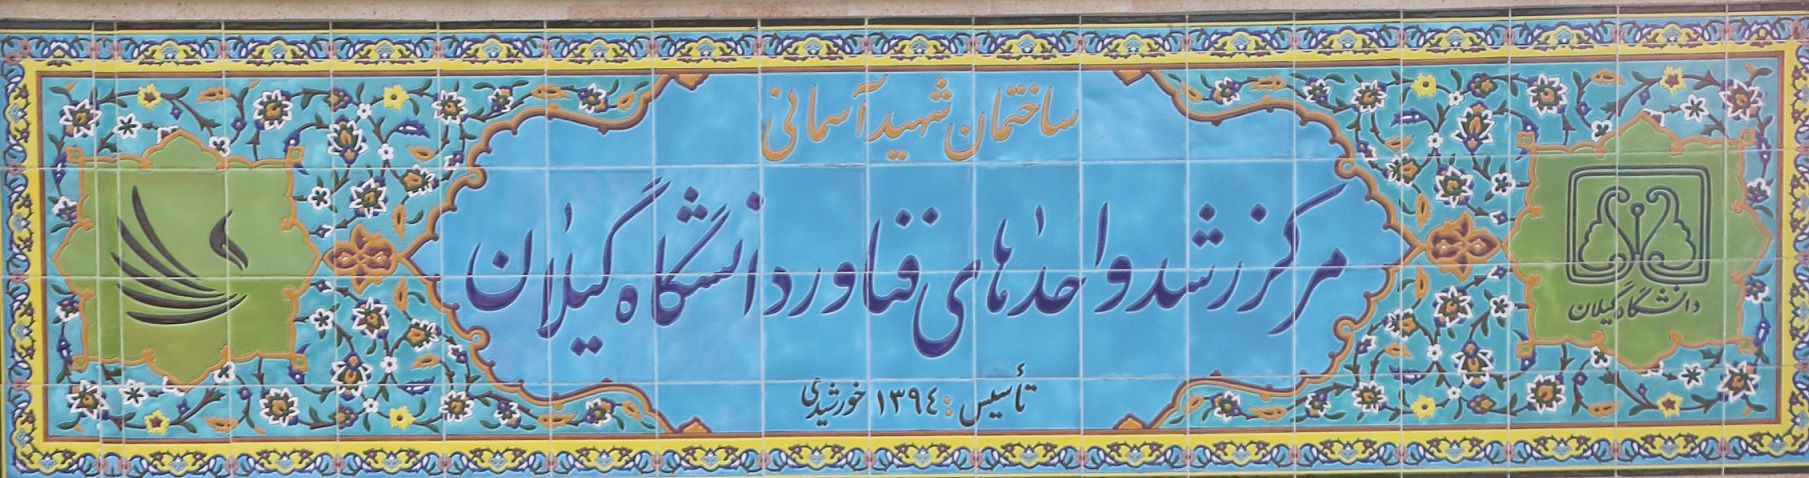 ساختمان شهید آسمانی
مرکز رشد واحدهای فناور دانشگاه گیلان
تأسیس : ۱۳۹٤ خورشیدی
دانشگاه گیلان